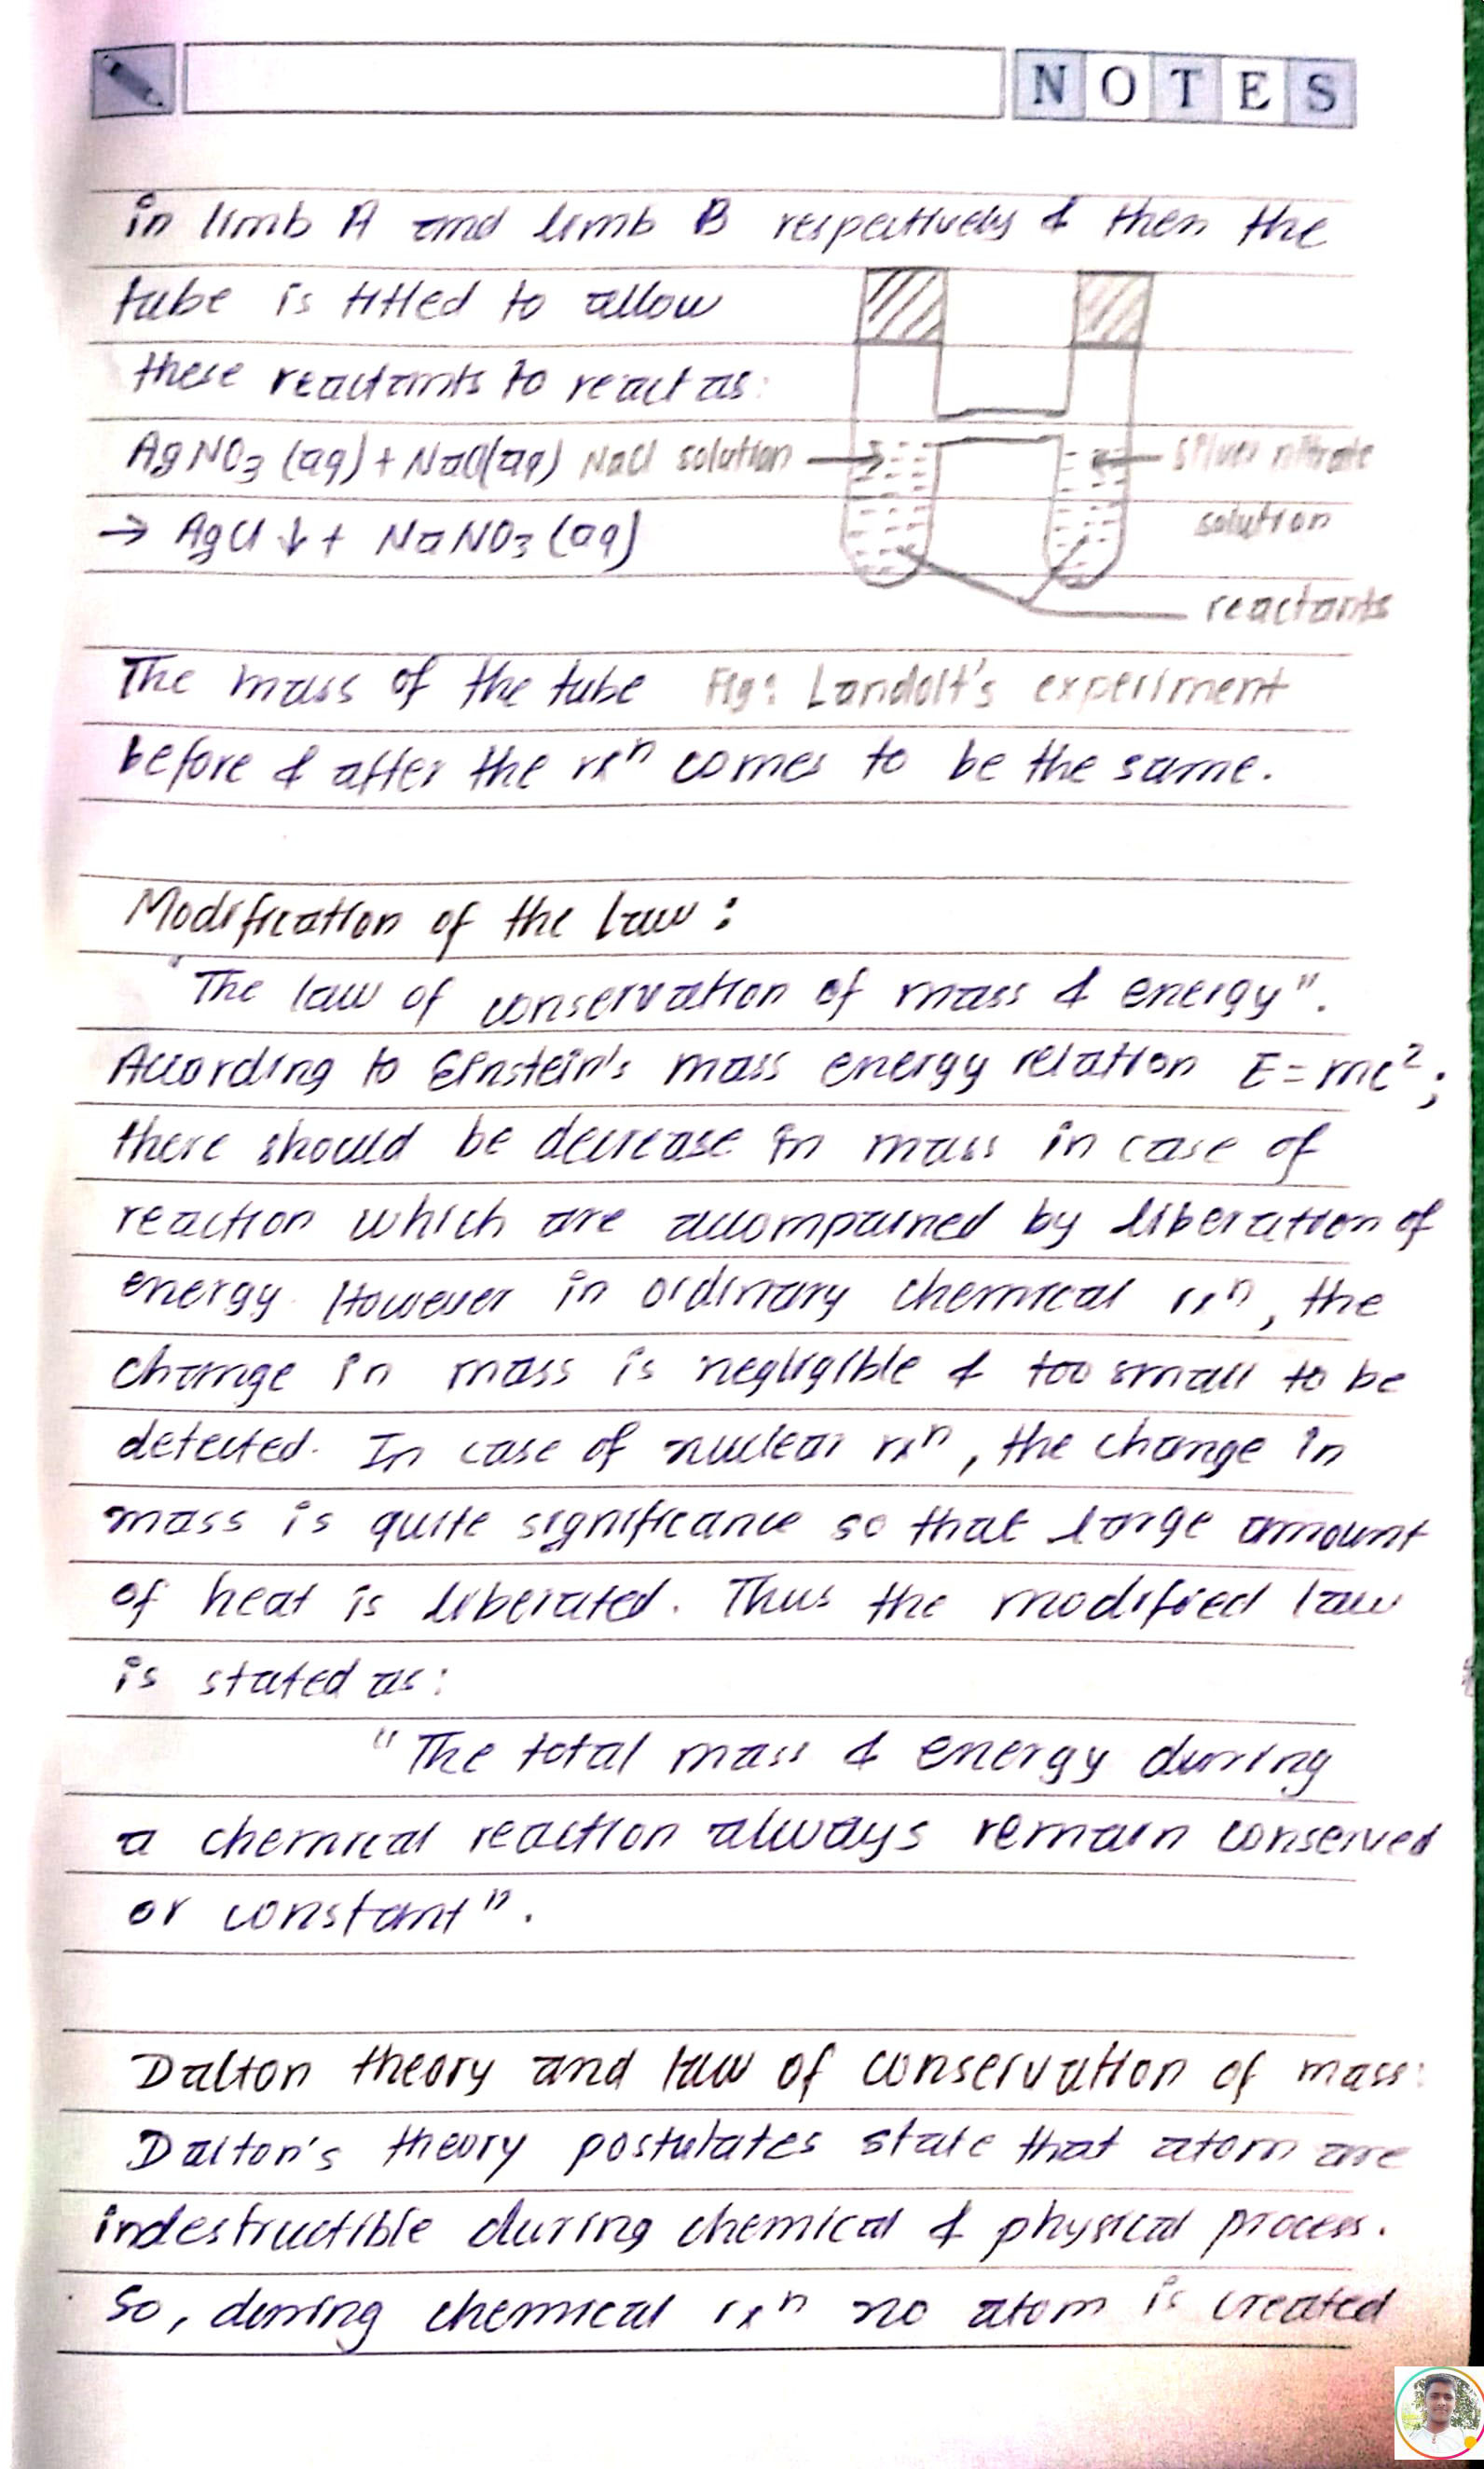 NOTES
in limb A and limb B respectively & then the
tube is tilted to allow
these reactants to react as:
AgNO₃ (aq) + NaCl(aq) NaCl solution silver nitrate
→ AgCl ↓ + NaNO₃ (aq) solution
reactants
The mass of the tube Fig: Landolt's experiment
before & after the rxⁿ comes to be the same.
Modification of the law:
"The law of conservation of mass & energy".
According to Einstein's mass energy relation E = mc²;
there should be decrease in mass in case of
reaction which are accompained by liberation of
energy. However in ordinary chemical rxⁿ, the
change in mass is negligible & too small to be
detected. In case of nuclear rxⁿ, the change in
mass is quite significance so that large amount
of heat is liberated. Thus the modified law
is stated as:
"The total mass & energy during
a chemical reaction always remain conserved
or constant".
Dalton theory and law of conservation of mass:
Dalton's theory postulates state that atom are
indestructible during chemical & physical process.
So, during chemical rxⁿ no atom is created